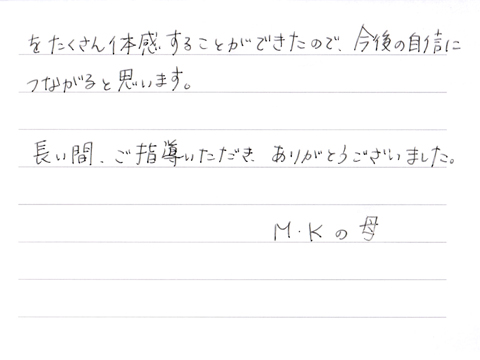 をたくさん体感することができたので、今後の自信に
つながると思います。
長い間、ご指導いただき、ありがとうございました。
M・Kの母